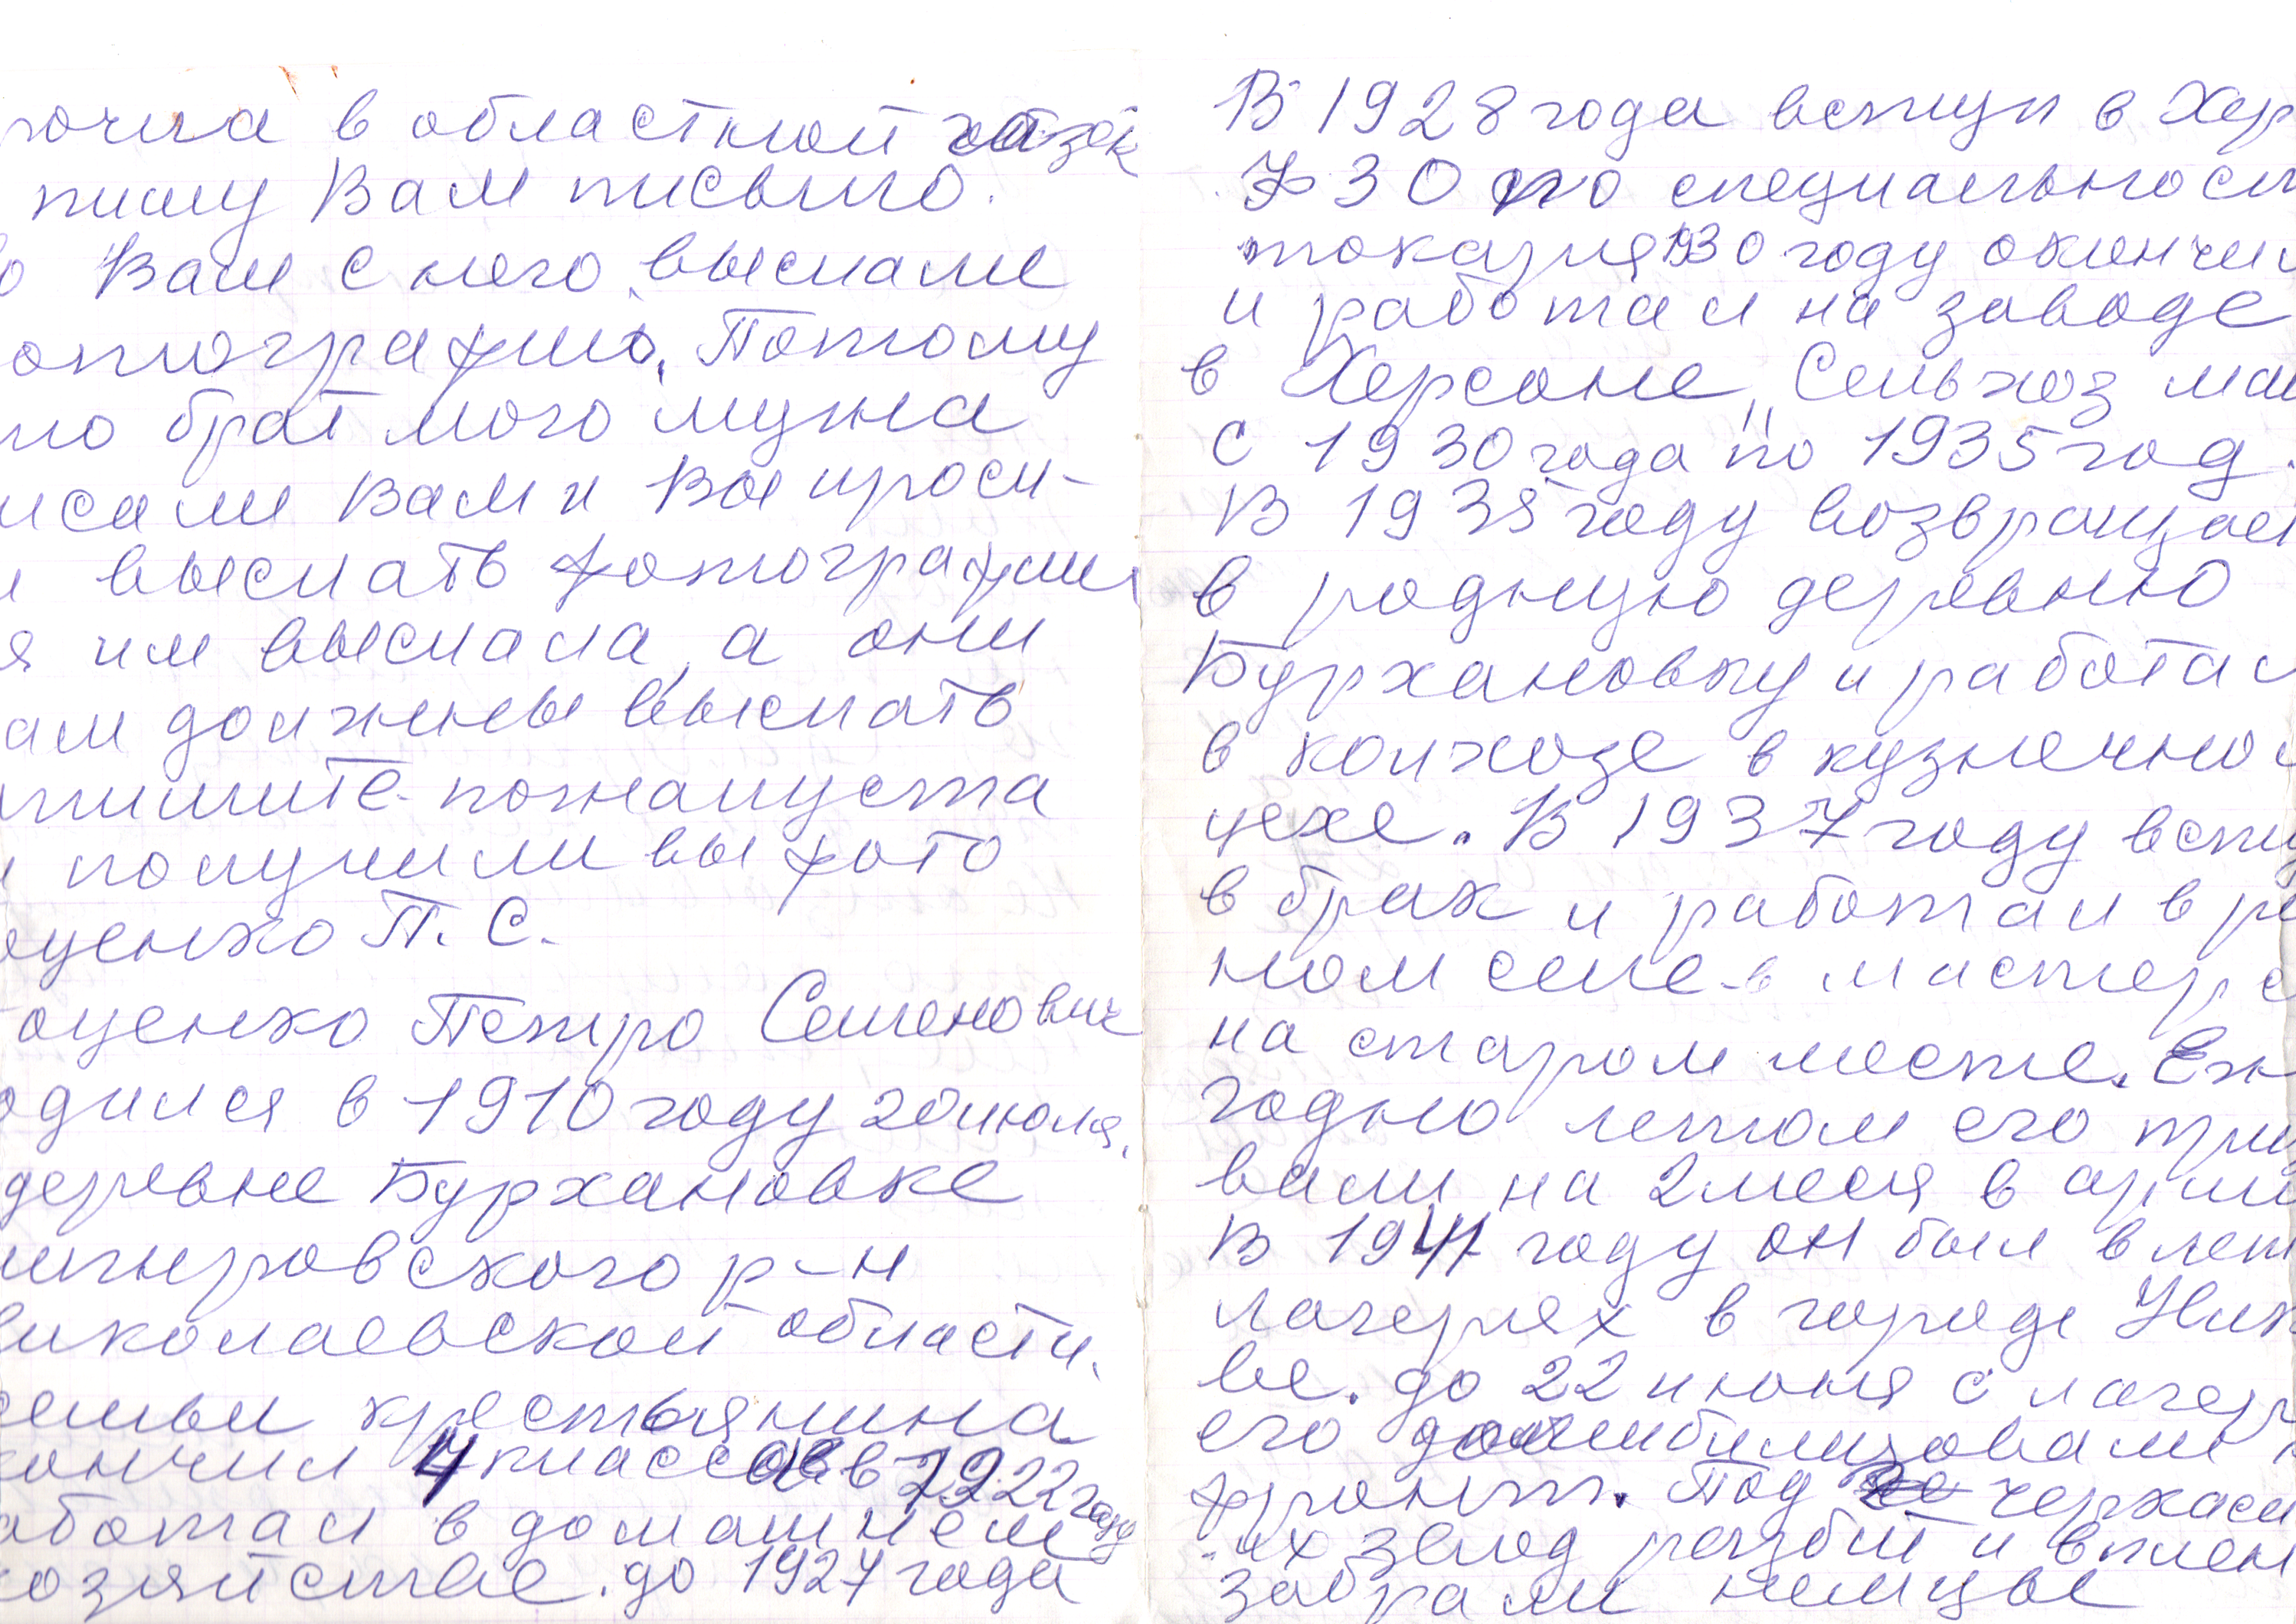 рочла в областной газет
пишу Вам письмо.
о Вам с него выслали
отографию. Потому
то брат мого мужа
исали Вам и Вы проси-
и выслать фотографии
я им выслала, а они
ам должны выслать
пишите пожалуста
и получили вы фото
оценко П. С.
оценко Петро Семенович
одился в 1910 году 20 июля.
деревне Бурхановке
нигировского р-н
иколаевской области.
семьи крестьянина
ончил 4 классов в 1922 году
аботал в домашнем
озяйстве. до 1927 года
В 1928 года вступ в Хер
ФЗО по специальност
токаря 1930 году окончил
и работал на заводе
в Херсоне „Сельхоз маш
с 1930 года по 1935 год.
В 1935 году возвращает
в родную деревню
Бурхановку и работал
в колхозе в кузнечно
цехе. В 1937 году всту
в брак и работал в ро
ном селе в мастерс
на старом месте. Еж
годно летом его при
вали на 2 меся в арми
В 1941 году он был в лет
лагерях в городе Ник
ве. до 22 июня с лагер
его домибилизовали н
фронт. Под черкаси
их звод разбит и в плен
забрали немцы